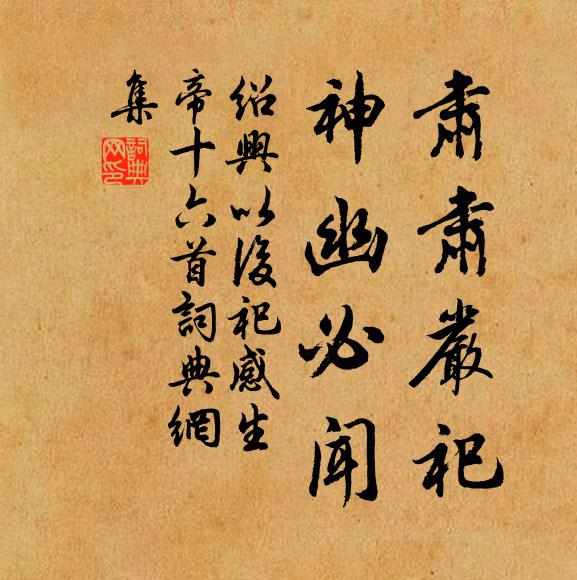 肅肅嚴祀
神幽必聞
紹興以後祀感生
帝十六首詞典網
集
詞典
网印